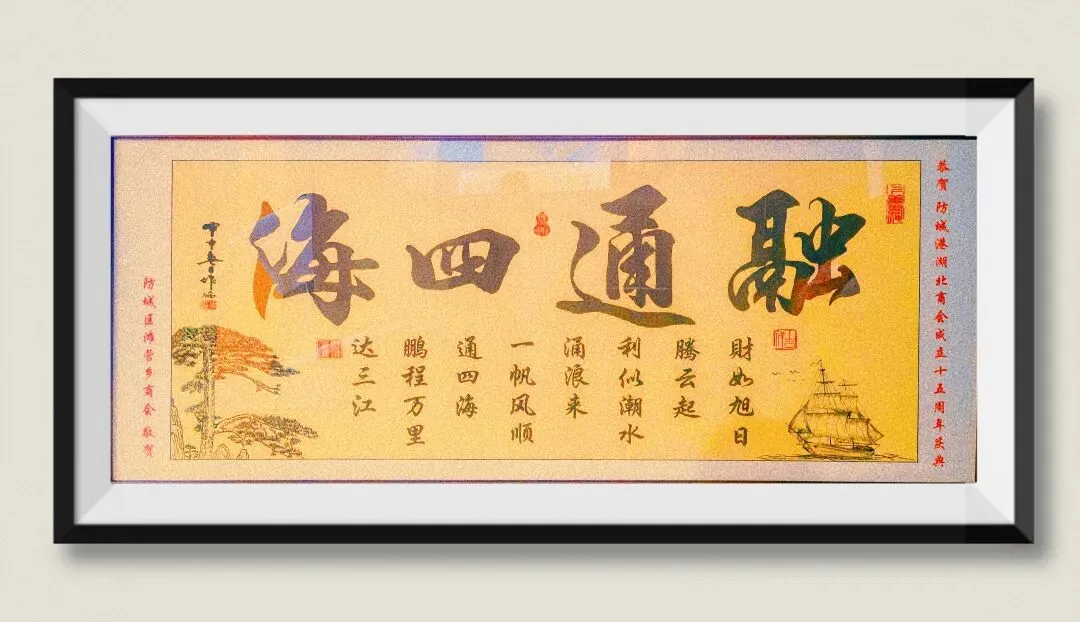 恭贺 防城港湖北商会成立十五周年庆典
融通四海
財如旭日
腾云起
利似潮水
涌浪来
一帆风顺
通四海
鹏程万里
达三江
甲申春日作
防城区滩营乡商会 敬贺